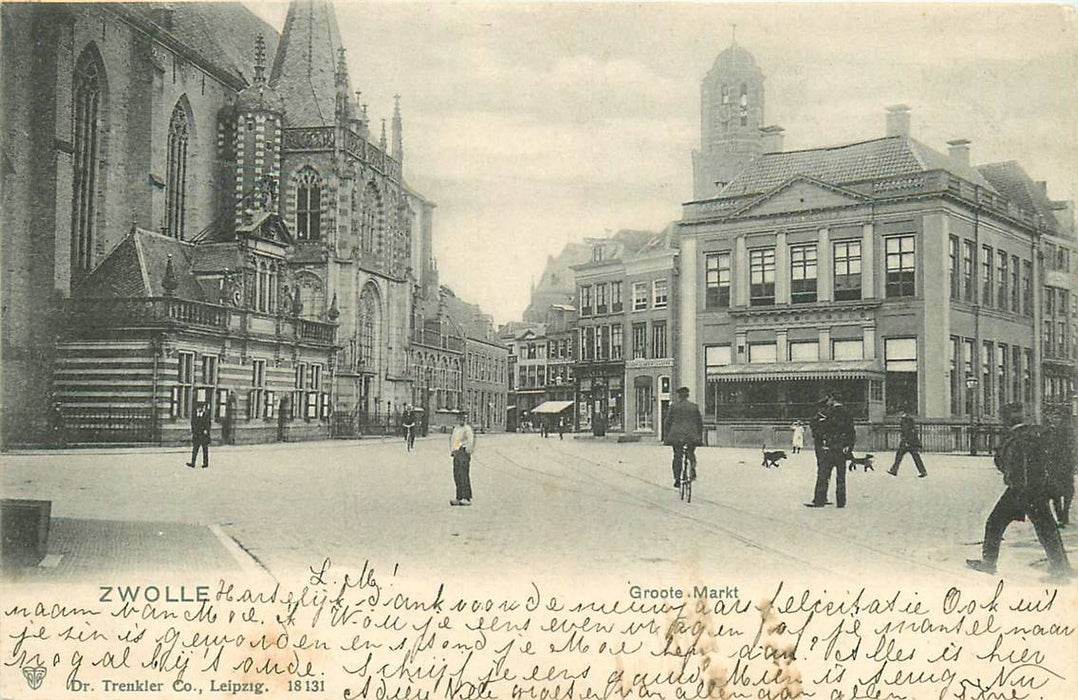 L. M!
ZWOLLE Hartelijk dank voor de nieuwjaars felicitatie Ook uit
Groote Markt
naam van Moe. Ik wou je eens even vragen of je mantel naar
je zin is geworden en stond je Moe hem aan? Alles is hier
nogal bij 't oude. Schrijf je eens gauw, Mien is terug. Nu
Dr. Trenkler Co., Leipzig. 18131
Adieu vele groeten van allen aan allen